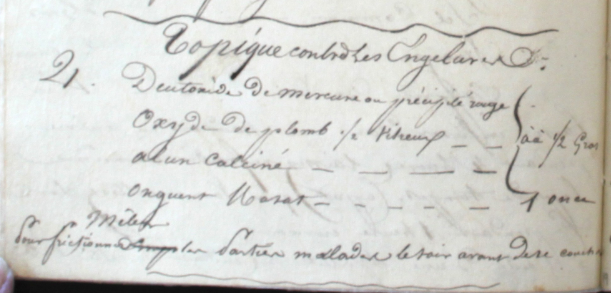 Topique contre les Engelures
21.
Deutoxide de mercure ou précipité rouge
Oxyde de plomb 1/2 vitreux
àà 1/2 Gros
alun calciné
onguent Rosat
1 once
Mêlez
pour frictionner les parties malades le soir avant de se coucher